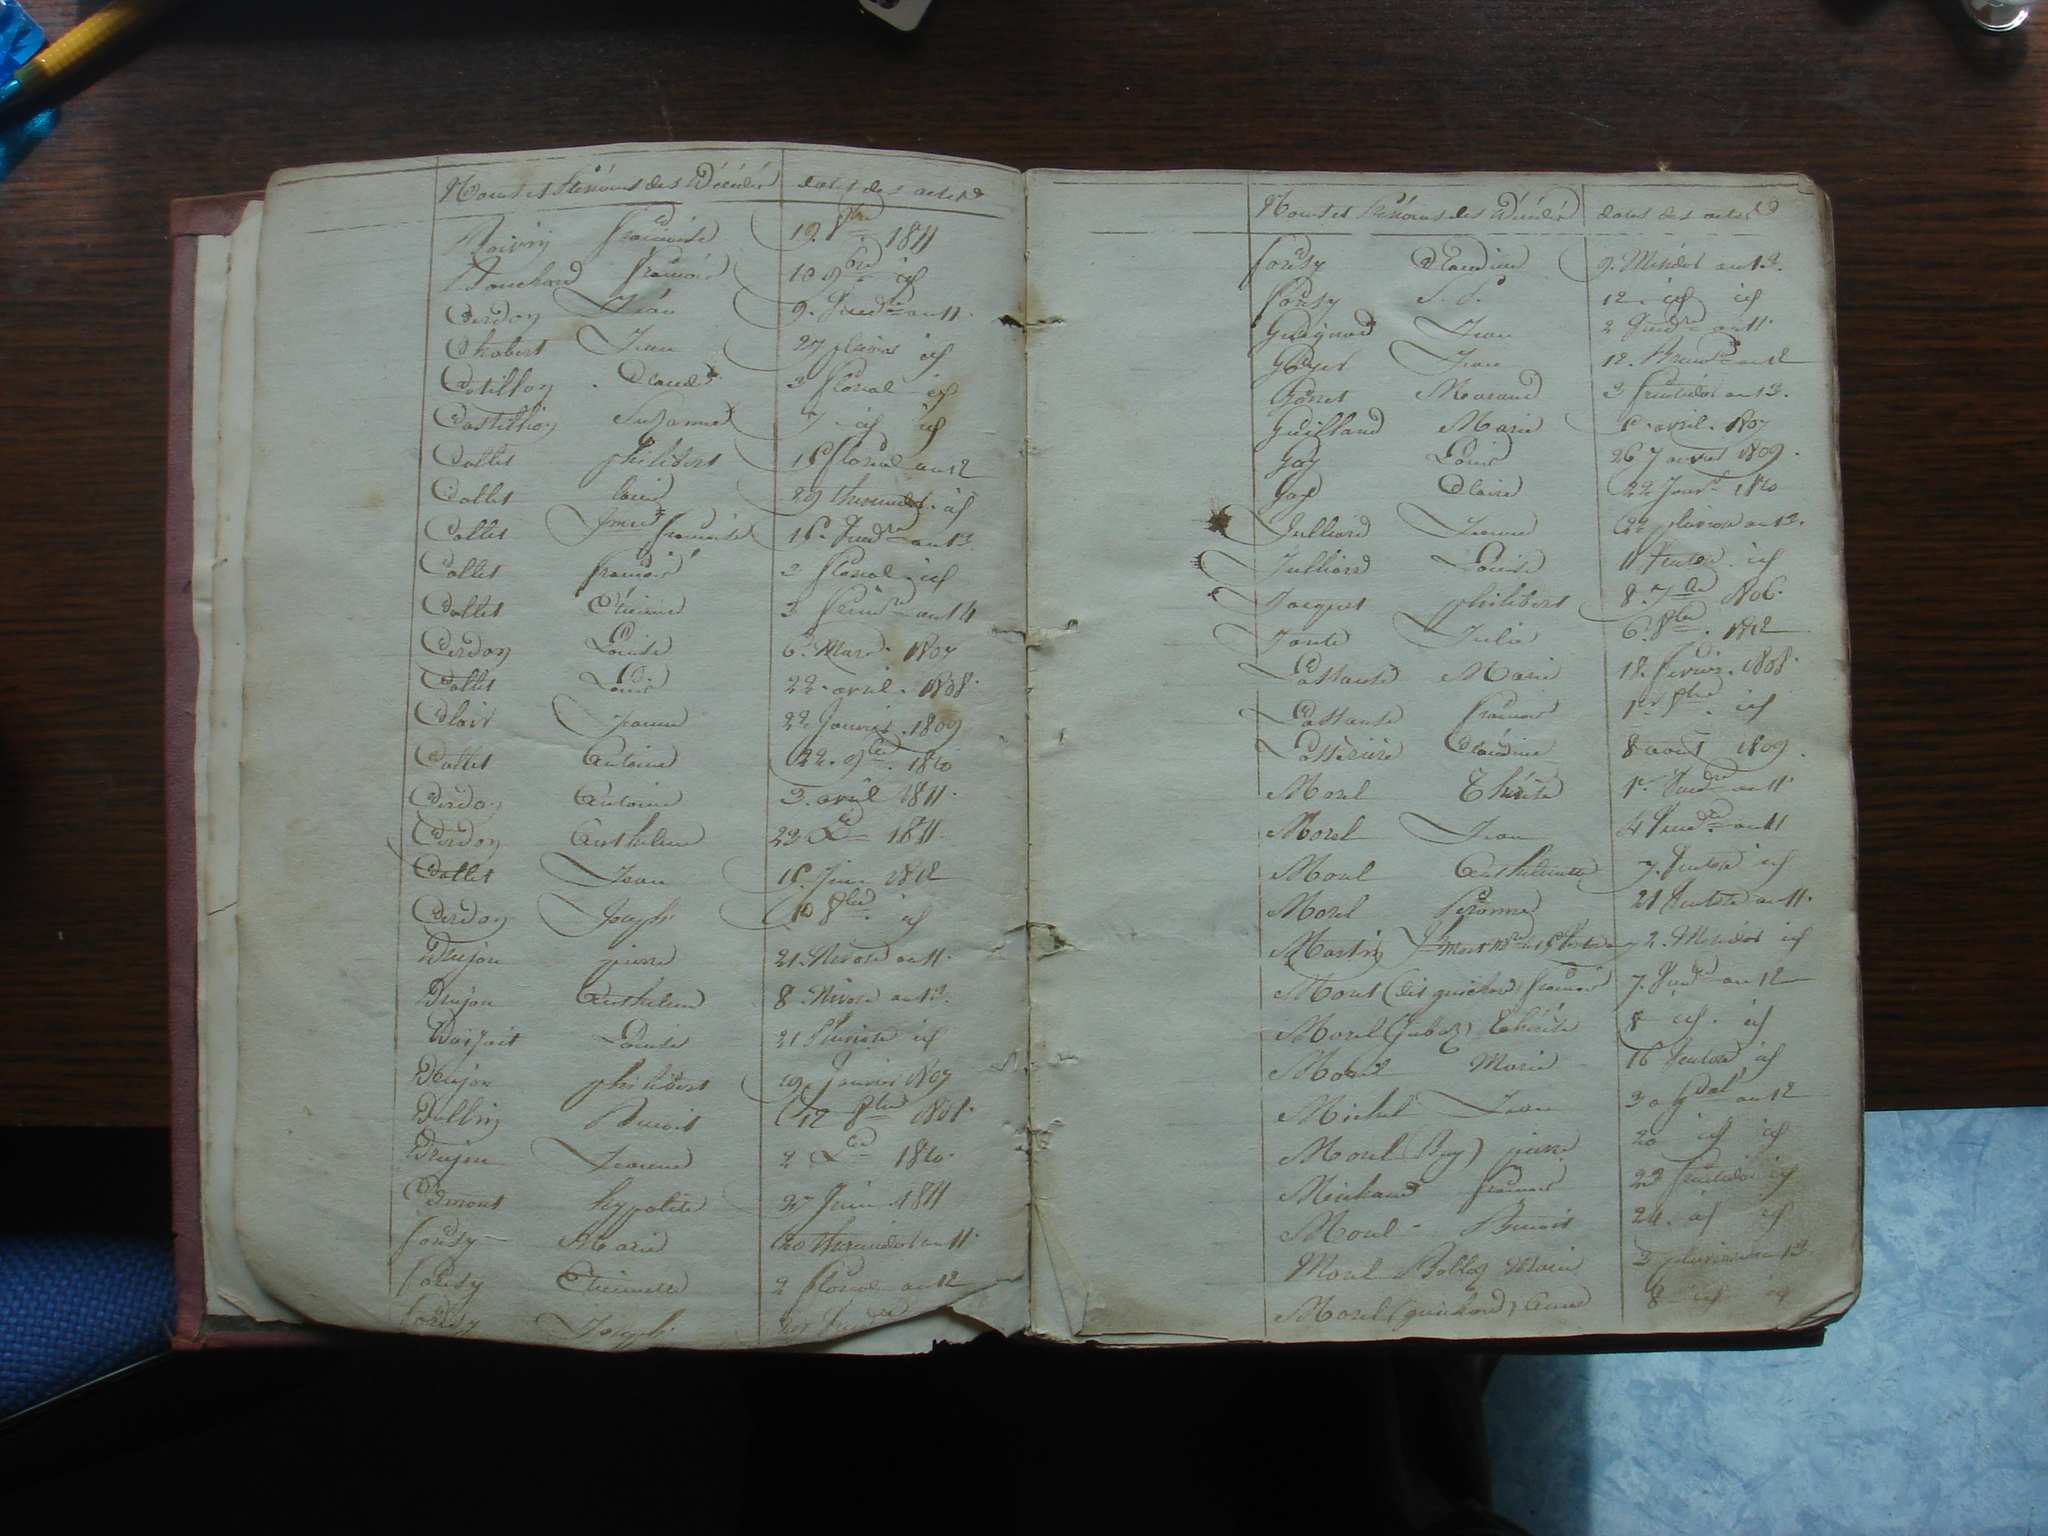 Noms et Prénoms des Décédés dates des actes
Boivin françoise 19. 8bre 1811
Bouchard françois 10 9bre id
Cerdon Jean 9. Vendre an 11.
Chabert Jean 27 pluvios id
Catillon Claude 3 floréal id
Castillion Suzanne 7. id id
Collet philibert 16 floréal an 12
Collet Louis 29 thermidor. id
Collet françoise 16. Vendre an 13.
Collet françois 3 floréal id
Collet Etienne 3 an 14
Cerdon Louise 6. Mars. 1807
Collet Louis 22. avril. 1808.
Clair Jeanne 22 Janvier. 1809
Collet Antoine 22. 9bre. 1810
Cerdon Antoine 3. avril 1811.
Cerdon Anthelme 23 Xre 1811.
Collet Jean 16. Juin 1812
Cerdon Joseph 10 8bre. id
Drujon pierre 21. Nivose an 11.
Drujon Anthelme 8. Nivose an 13.
Louise 21 Pluviose id
Drujon philibert 19. Janvier 1807
Dullin Benoit 12 8bre 1808.
Drujon Jeanne 2 Xre 1810.
Edmont hypolite 27 Juin. 1811
foresy Marie 20 thermidor an 11.
foresy Etiennette 2 floréal an 12
foresy Joseph
Noms et Prénoms des Décédés dates des actes
foresy Claudine 9. Messidor an 13.
foresy 12. id id
Jean 2 Vendre an 11.
Goyet Jean 12. Brumre an 12
Marand 3 fructidor an 13.
Guilland Marie avril. 1807
Gay Louis 26 1809.
Gay Claire 22 Janvr 1810
Julliard Jeanne 22 pluviose an 13.
Julliard Louise 11 Ventose. id
Jacquet philibert 8. 7bre 1806.
Julie 6. 8bre. 1812
Marie 18. fevrier. 1808.
françois 1er 8bre. id
Claudine 8 aout 1809.
Morel Thérèse 1er. Vendre an 11.
Morel Jean 4 Vendre. an 11
Morel Anthelmette 7. Ventose id
Morel Péronne 21 Ventose an 11.
Martin 2. Messidor id
Morel (dit guichard) françois 7. Vendre an 12
Morel (Jubaz) Thérèse 8 id. id
Morel Marie 16 Ventose id
Michel Jean 3 an 12
Morel (Bey) pierre 20 id id
Michaud françois 23 fructidor id
Morel - Benoit 24. id id
Morel Marie 3 pluviose an 13.
Morel (guichard) Anne 8 id id